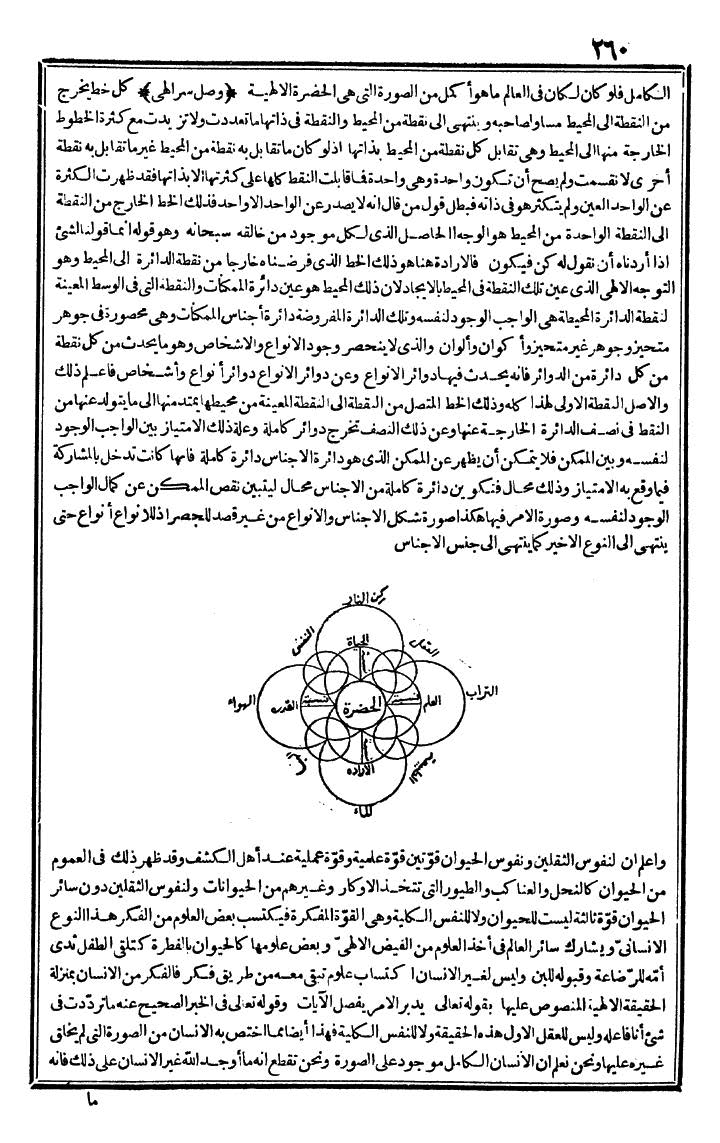 ٢٦٠
الكامل فلو كان لكان فى العالم ما هو أكمل من الصورة التى هى الحضرة الالهية ﴿وصل سر الهى﴾ كل خط يخرج
من النقطة الى المحيط مساو لصاحبه وينتهى الى نقطة من المحيط والنقطة فى ذاتها ما تعددت ولا تزيدت مع كثرة الخطوط
الخارجة منها الى المحيط وهى تقابل كل نقطة من المحيط بذاتها اذ لو كان ما تقابل به نقطة من المحيط غير ما تقابل به نقطة
أخرى لانقسمت ولم يصح أن تكون واحدة وهى واحدة فما قابلت النقط كلها على كثرتها الا بذاتها فقد ظهرت الكثرة
عن الواحد العين ولم يتكثر هو فى ذاته فبطل قول من قال انه لا يصدر عن الواحد الا واحد فذلك الخط الخارج من النقطة
الى النقطة الواحدة من المحيط هو الوجه الحاصل الذى لكل موجود من خالقه سبحانه وهو قوله انما قولنا لشئ
اذا أردناه أن نقول له كن فيكون فالارادة هنا هو ذلك الخط الذى فرضناه خارجا من نقطة الدائرة الى المحيط وهو
التوجه الالهى الذى عين تلك النقطة فى المحيط بالايجاد لان ذلك المحيط هو عين دائرة الممكنات والنقطة التى فى الوسط المعينة
لنقطة الدائرة المحيطة هى الواجب الوجود لنفسه وتلك الدائرة المفروضة دائرة أجناس الممكنات وهى محصورة فى جوهر
متحيز وجوهر غير متحيز وأكوان وألوان والذى لا ينحصر وجود الانواع والاشخاص وهو ما يحدث من كل نقطة
من كل دائرة من الدوائر فانه يحدث فيها دوائر الانواع وعن دوائر الانواع دوائر أنواع وأشخاص فاعلم ذلك
والاصل النقطة الاولى لهذا كله وذلك الخط المتصل من النقطة الى النقطة المعينة من محيطها يمتد منها الى ما يتولد عنها من
النقط فى نصف الدائرة الخارجة عنها وعن ذلك النصف تخرج دوائر كاملة وعلة ذلك الامتياز بين الواجب الوجود
لنفسه وبين الممكن فلا يتمكن أن يظهر عن الممكن الذى هو دائرة الاجناس دائرة كاملة فانها كانت تدخل بالمشاركة
فيما وقع به الامتياز وذلك محال فتكوين دائرة كاملة من الاجناس محال ليتبين نقص الممكن عن كمال الواجب
الوجود لنفسه وصورة الامر فيها هكذا صورة شكل الاجناس والانواع من غير قصد للحصر اذ للانواع أنواع حتى
ينتهى الى النوع الاخير كما ينتهى الى جنس الاجناس
ركن النار
النفس
العقل
الحياة
التراب
العلم
نسبة
الحضرة
نسبة
القدره
الهواء
الاراده
الطبيعة
الماء
واعلم ان لنفوس الثقلين ونفوس الحيوان قوتين قوة علمية وقوة عملية عند أهل الكشف وقد ظهر ذلك فى العموم
من الحيوان كالنحل والعناكب والطيور التى تتخذ الاوكار وغيرهم من الحيوانات ولنفوس الثقلين دون سائر
الحيوان قوة ثالثة ليست للحيوان ولا للنفس الكلية وهى القوة المفكرة فيكتسب بعض العلوم من الفكر هذا النوع
الانسانى ويشارك سائر العالم فى أخذ العلوم من الفيض الالهى وبعض علومها كالحيوان بالفطرة كتلقى الطفل ثدى
أمه للرضاعة وقبوله للبن وليس لغير الانسان اكتساب علوم تبقى معه من طريق فكر فالفكر من الانسان بمنزلة
الحقيقة الالهية المنصوص عليها بقوله تعالى يدبر الامر يفصل الآيات وقوله تعالى فى الخبر الصحيح عنه ما ترددت فى
شئ أنا فاعله وليس للعقل الاول هذه الحقيقة ولا للنفس الكلية فهذا أيضا مما اختص به الانسان من الصورة التى لم يخلق
غيره عليها ونحن نعلم ان الانسان الكامل موجود على الصورة ونحن نقطع انه ما أوجد الله غير الانسان على ذلك فانه
ما